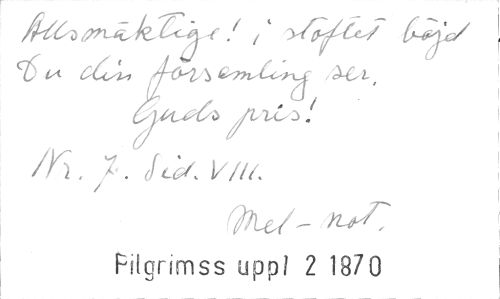 Allsmäktige! i stoftet böjd
Du din församling ser.
Guds pris!
Nr. 7. Sid. VIII.
Mel-not.
Pilgrimss uppl 2 1870